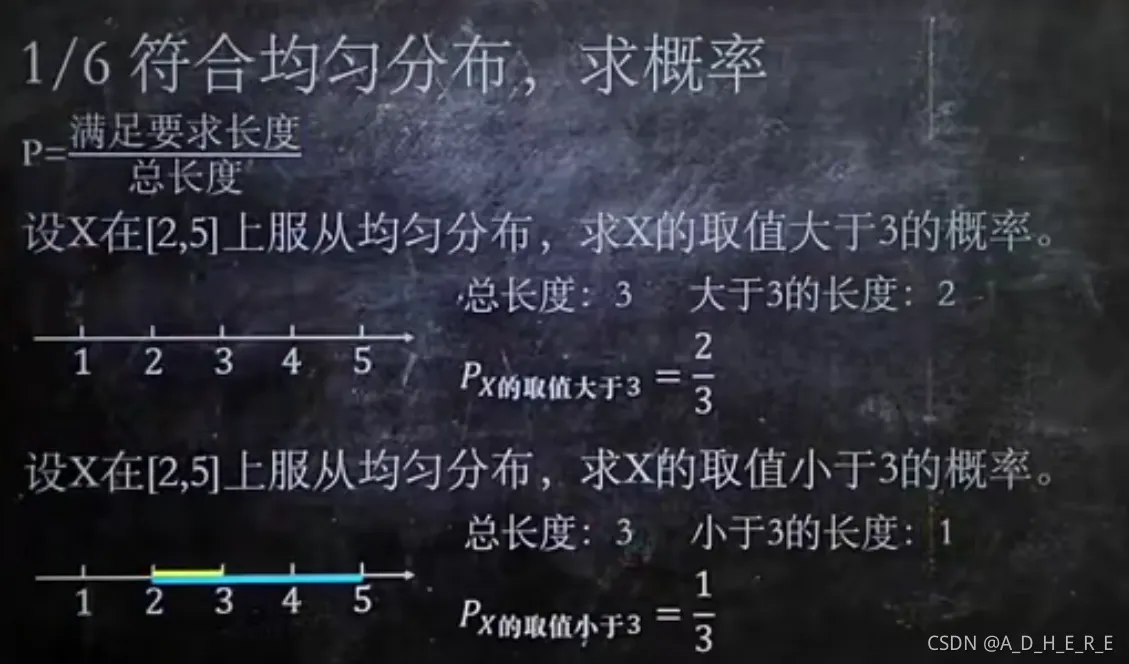 1/6 符合均匀分布，求概率
P=满足要求长度/总长度
设X在[2,5]上服从均匀分布，求X的取值大于3的概率。
总长度：3 大于3的长度：2
1 2 3 4 5
P_X的取值大于3 = 2/3
设X在[2,5]上服从均匀分布，求X的取值小于3的概率。
总长度：3 小于3的长度：1
1 2 3 4 5
P_X的取值小于3 = 1/3
CSDN @A_D_H_E_R_E